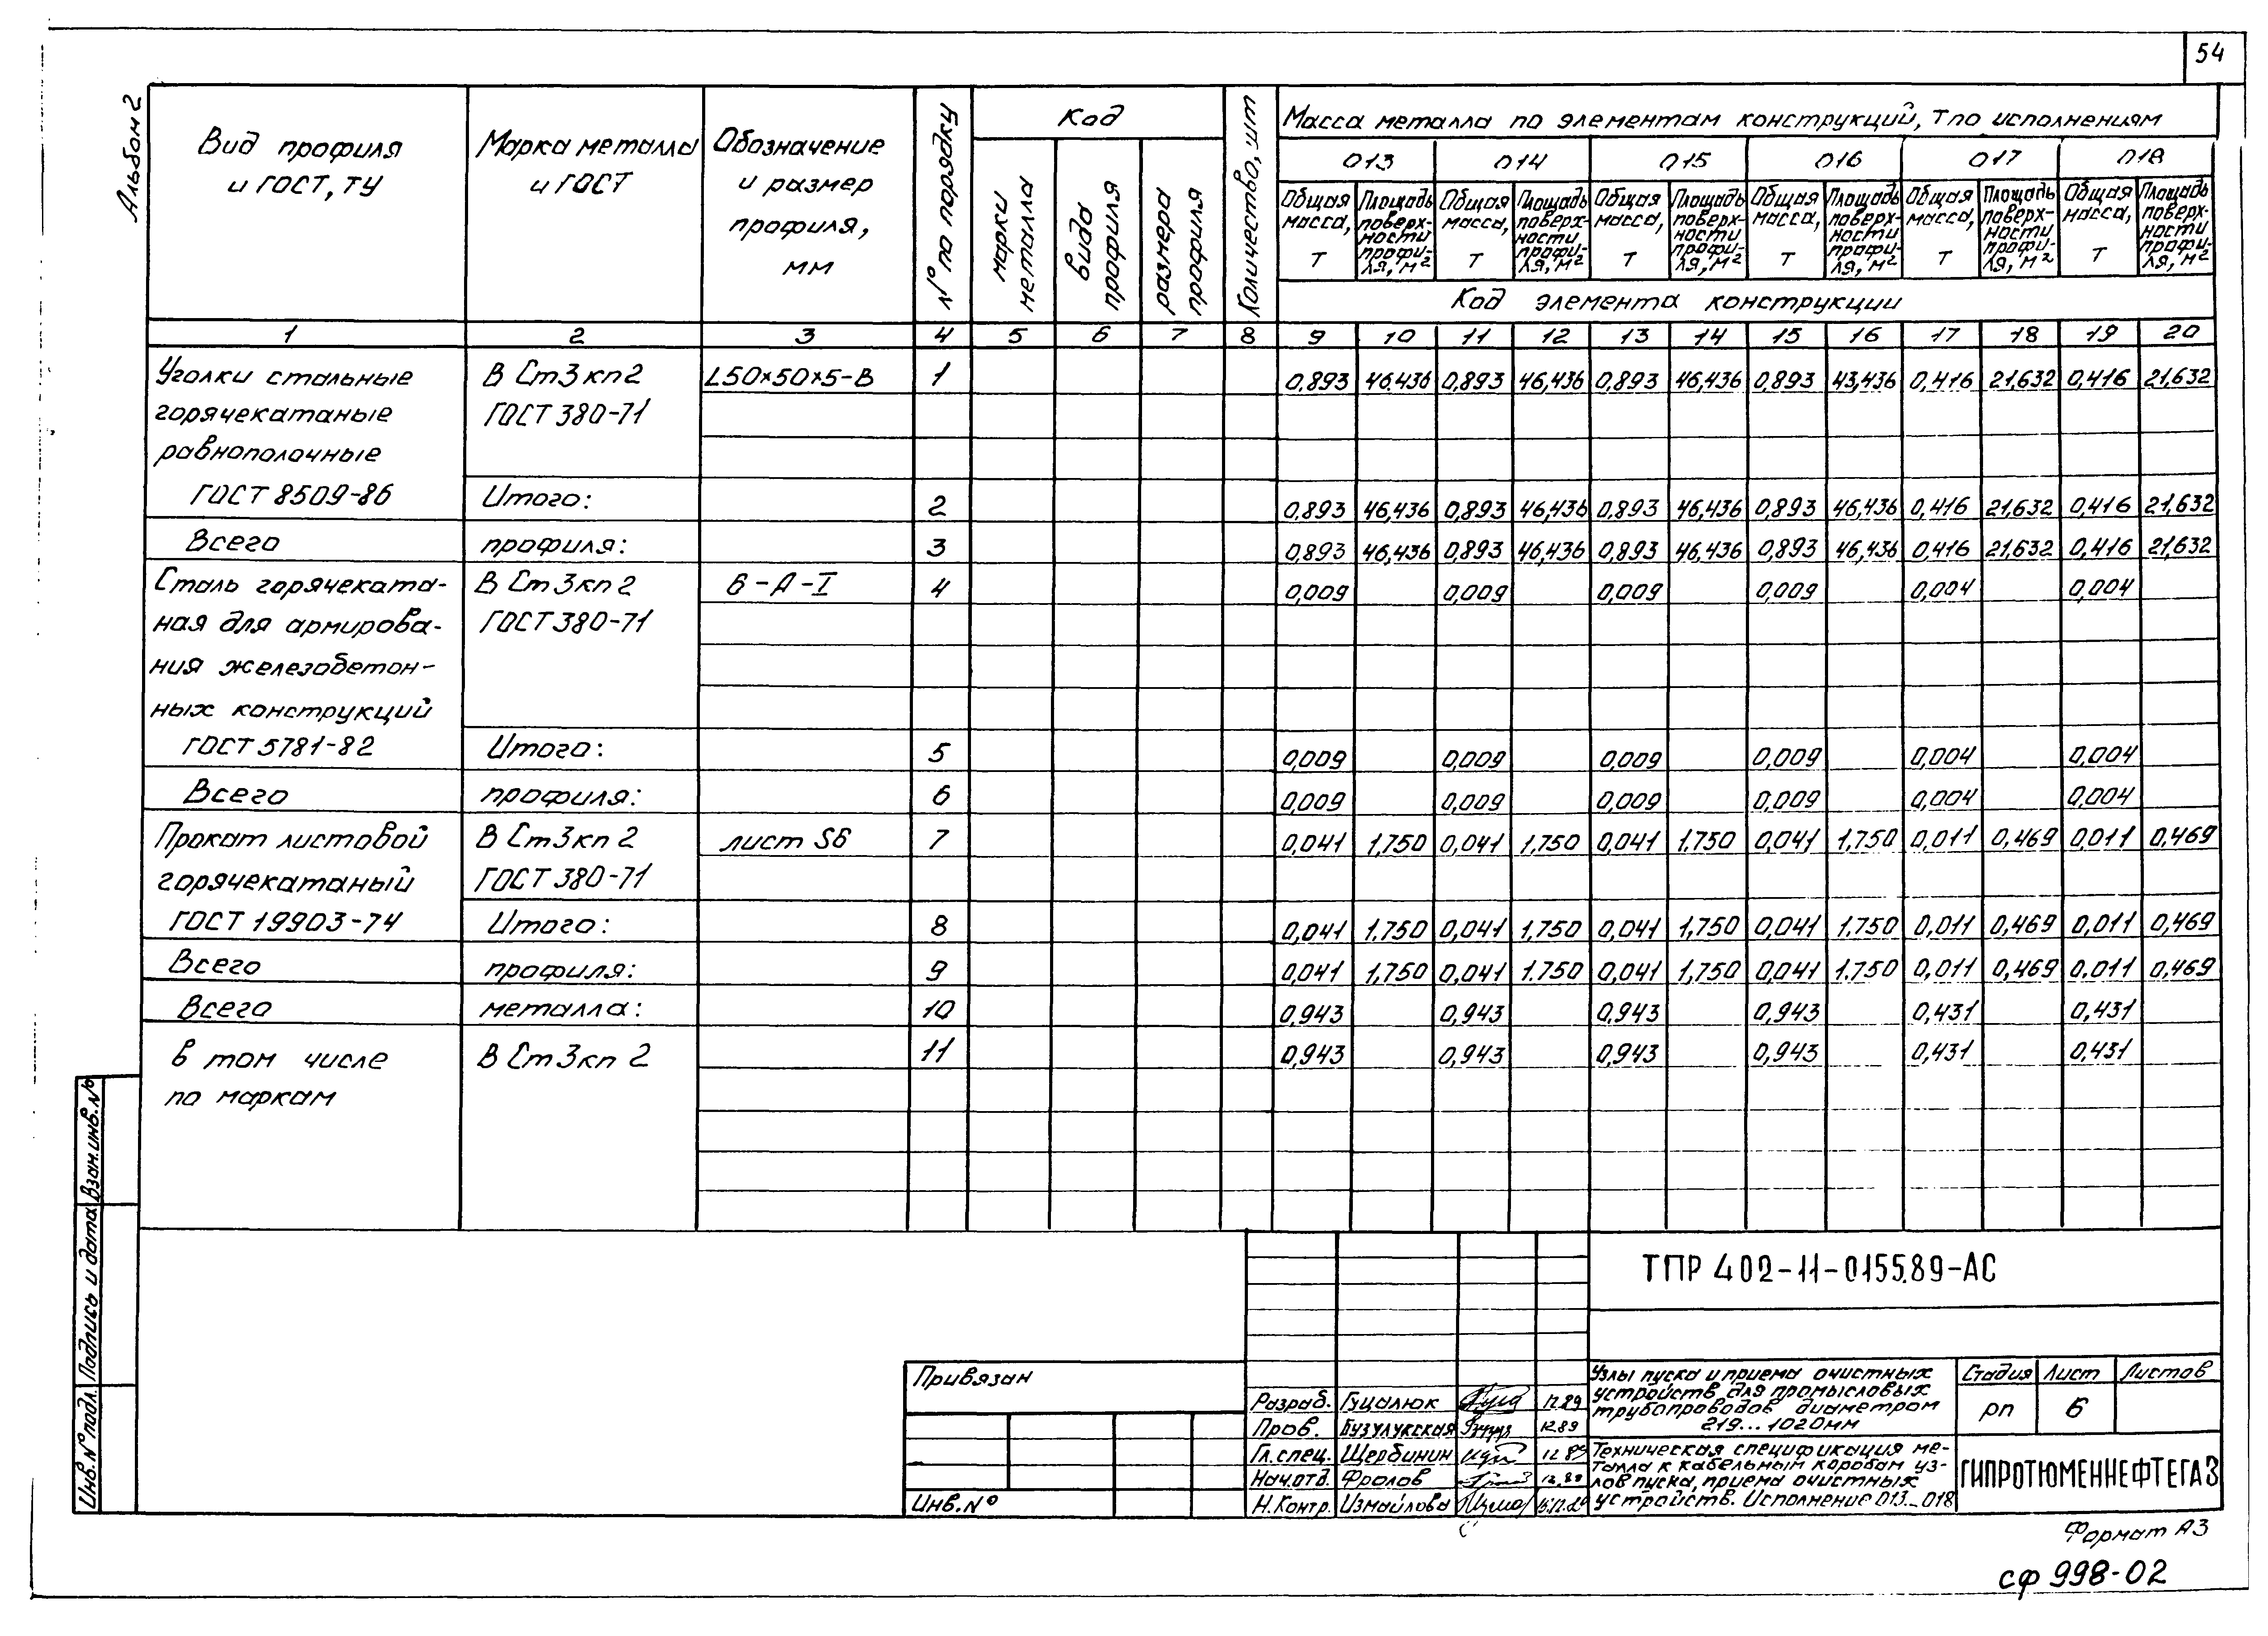 54
Альбом 2
Вид профиля и ГОСТ, ТУ
Марка металла и ГОСТ
Обозначение и размер профиля, мм
N° по порядку
Код
марки металла
вида профиля
размера профиля
Количество, шт
Масса металла по элементам конструкций, Т по исполнениям
013 014 015 016 017 018
Общая масса, Т Площадь поверхности профиля, м² Общая масса, Т Площадь поверхности профиля, м² Общая масса, Т Площадь поверхности профиля, м² Общая масса, Т Площадь поверхности профиля, м² Общая масса, Т Площадь поверхности профиля, м² Общая масса, Т Площадь поверхности профиля, м²
Код элемента конструкции
1 2 3 4 5 6 7 8 9 10 11 12 13 14 15 16 17 18 19 20
Уголки стальные В Ст3кп2 L50×50×5-В 1 0,893 46,436 0,893 46,436 0,893 46,436 0,893 43,436 0,416 21,632 0,416 21,632
горячекатаные ГОСТ 380-71
равнополочные
ГОСТ 8509-86 Итого: 2 0,893 46,436 0,893 46,436 0,893 46,436 0,893 46,436 0,416 21,632 0,416 21,632
Всего профиля: 3 0,893 46,436 0,893 46,436 0,893 46,436 0,893 46,436 0,416 21,632 0,416 21,632
Сталь горячеката- В Ст3кп2 6-А-I 4 0,009 0,009 0,009 0,009 0,004 0,004
ная для армирова- ГОСТ 380-71
ния железобетон-
ных конструкций
ГОСТ 5781-82 Итого: 5 0,009 0,009 0,009 0,009 0,004 0,004
Всего профиля: 6 0,009 0,009 0,009 0,009 0,004 0,004
Прокат листовой В Ст3кп2 лист S6 7 0,041 1,750 0,041 1,750 0,041 1,750 0,041 1,750 0,011 0,469 0,011 0,469
горячекатаный ГОСТ 380-71
ГОСТ 19903-74 Итого: 8 0,041 1,750 0,041 1,750 0,041 1,750 0,041 1,750 0,011 0,469 0,011 0,469
Всего профиля: 9 0,041 1,750 0,041 1.750 0,041 1,750 0,041 1.750 0,011 0,469 0.011 0,469
Всего металла: 10 0,943 0,943 0,943 0,943 0,431 0,431
в том числе В Ст3кп 2 11 0,943 0,943 0,943 0,943 0,431 0,431
по маркам
Взам.инв.№
Подпись и дата
Инв.N° подл.
Привязан
Инв.N°
Разраб. Гуцалюк 12.89
Пров. Бузулукская 12.89
Гл.спец. Щербинин 12.89
Нач.отд. Фролов 12.89
Н.Контр. Измайлова
ТПР 402-11-0155.89-АС
Узлы пуска и приема очистных
устройств для промысловых
трубопроводов диаметром
219...1020мм
Стадия Лист Листов
рп 6
Техническая спецификация ме-
талла к кабельным коробам уз-
лов пуска, приема очистных
устройств. Исполнение 013...018
ГИПРОТЮМЕННЕФТЕГАЗ
Формат А3
сф 998-02